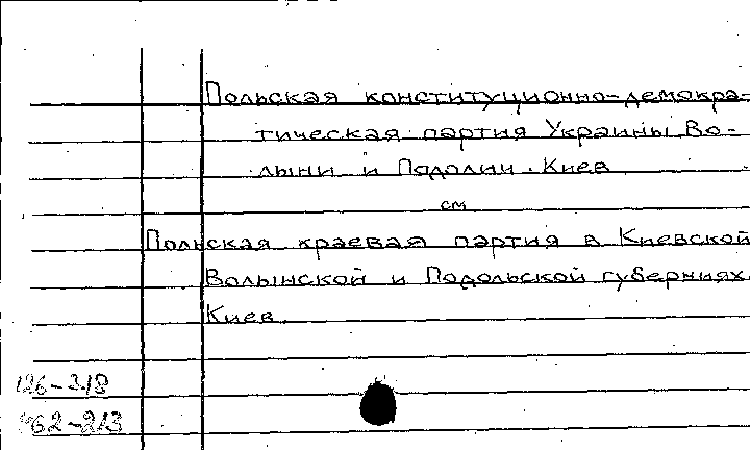 Польская конституционно-демокра-
тическая партия Украины, Во-
лыни и Подолии. Киев
см
Польская краевая партия в Киевской
Волынской и Подольской губерниях.
Киев.
126-318
62-213